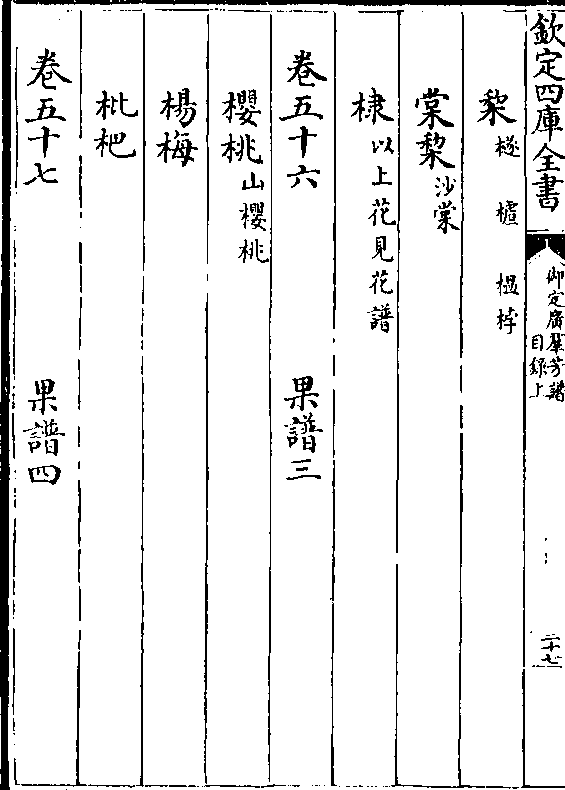 欽定四庫全書
御定廣羣芳譜
目録上
二十七
棃 檖 樝 榲桲
棠棃 沙棠
棣 以上花見花譜
卷五十六 果譜三
櫻桃 山櫻桃
楊梅
枇杷
卷五十七 果譜四